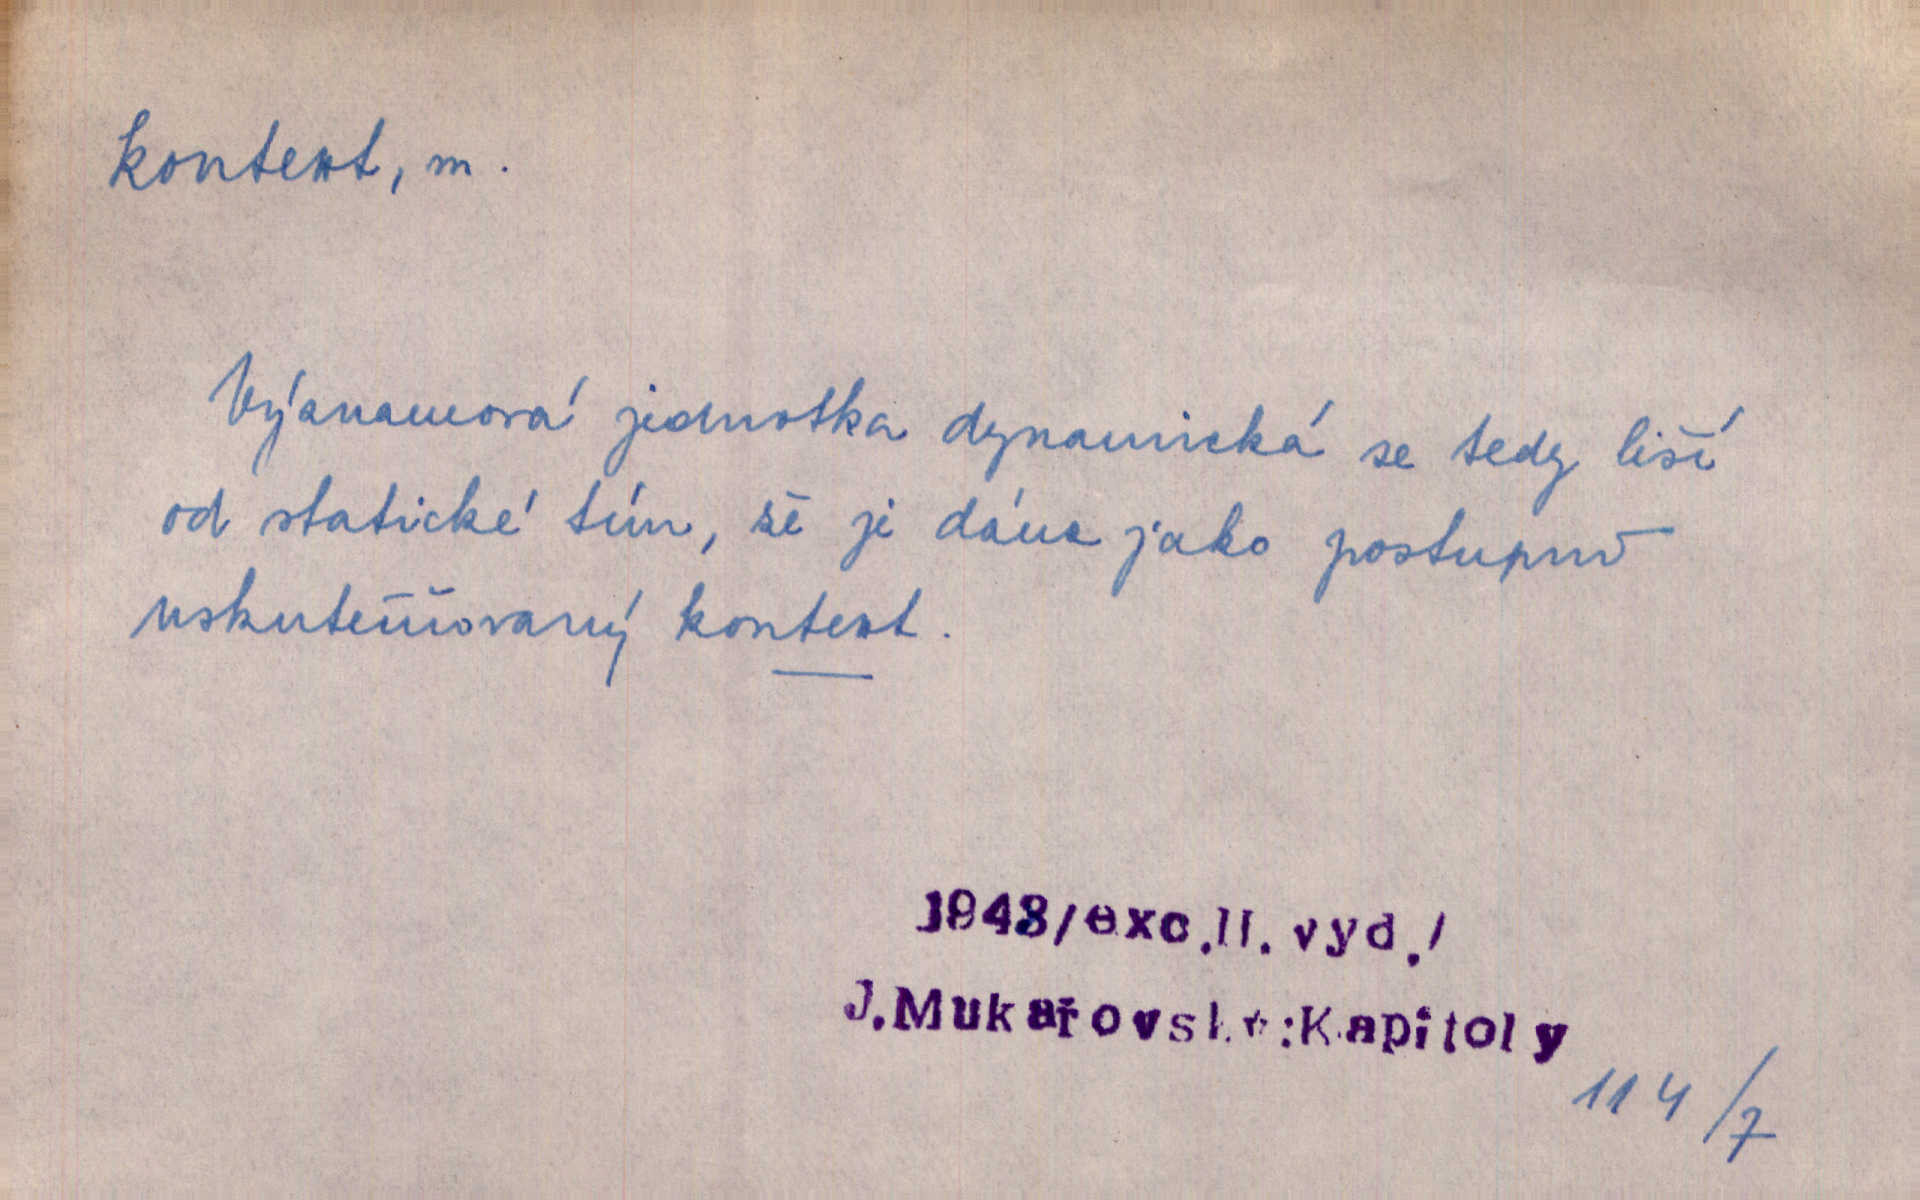 kontext, m.
Významová jednotka dynamická se tedy liší
od statické tím, že je dána jako postupně
uskutečňovaný kontext.
1948/exc.II. vyd./
J.Mukařovský:Kapitoly
114/7